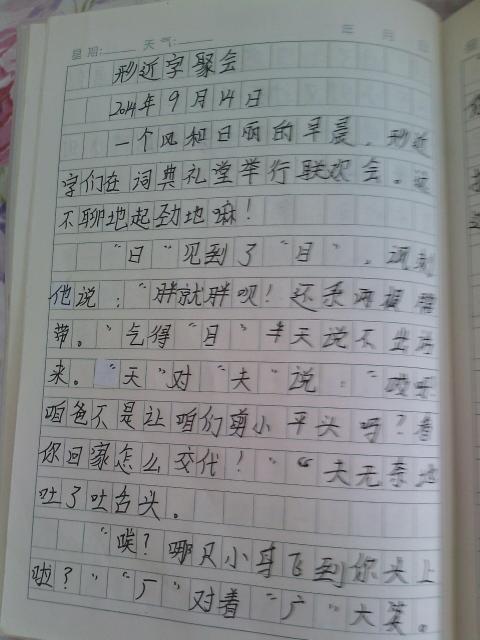 星期: 天气: 年 月 日
形近字聚会
2014年9月14日
一个风和日丽的早晨,形近
字们在词典礼堂举行联欢会。
不聊地起劲地嘛!
"日"见到了"目",讽刺
他说:"胖就胖呗!还系两根腰
带。"气得"目"半天说不出话
来。"天"对"夫"说:"哎呀
咱爸不是让咱们剪小平头吗?看
你回家怎么交代!""夫无奈地
吐了吐舌头。
"唉?哪只小鸟飞到你头上
啦?""厂"对着"广"大笑。